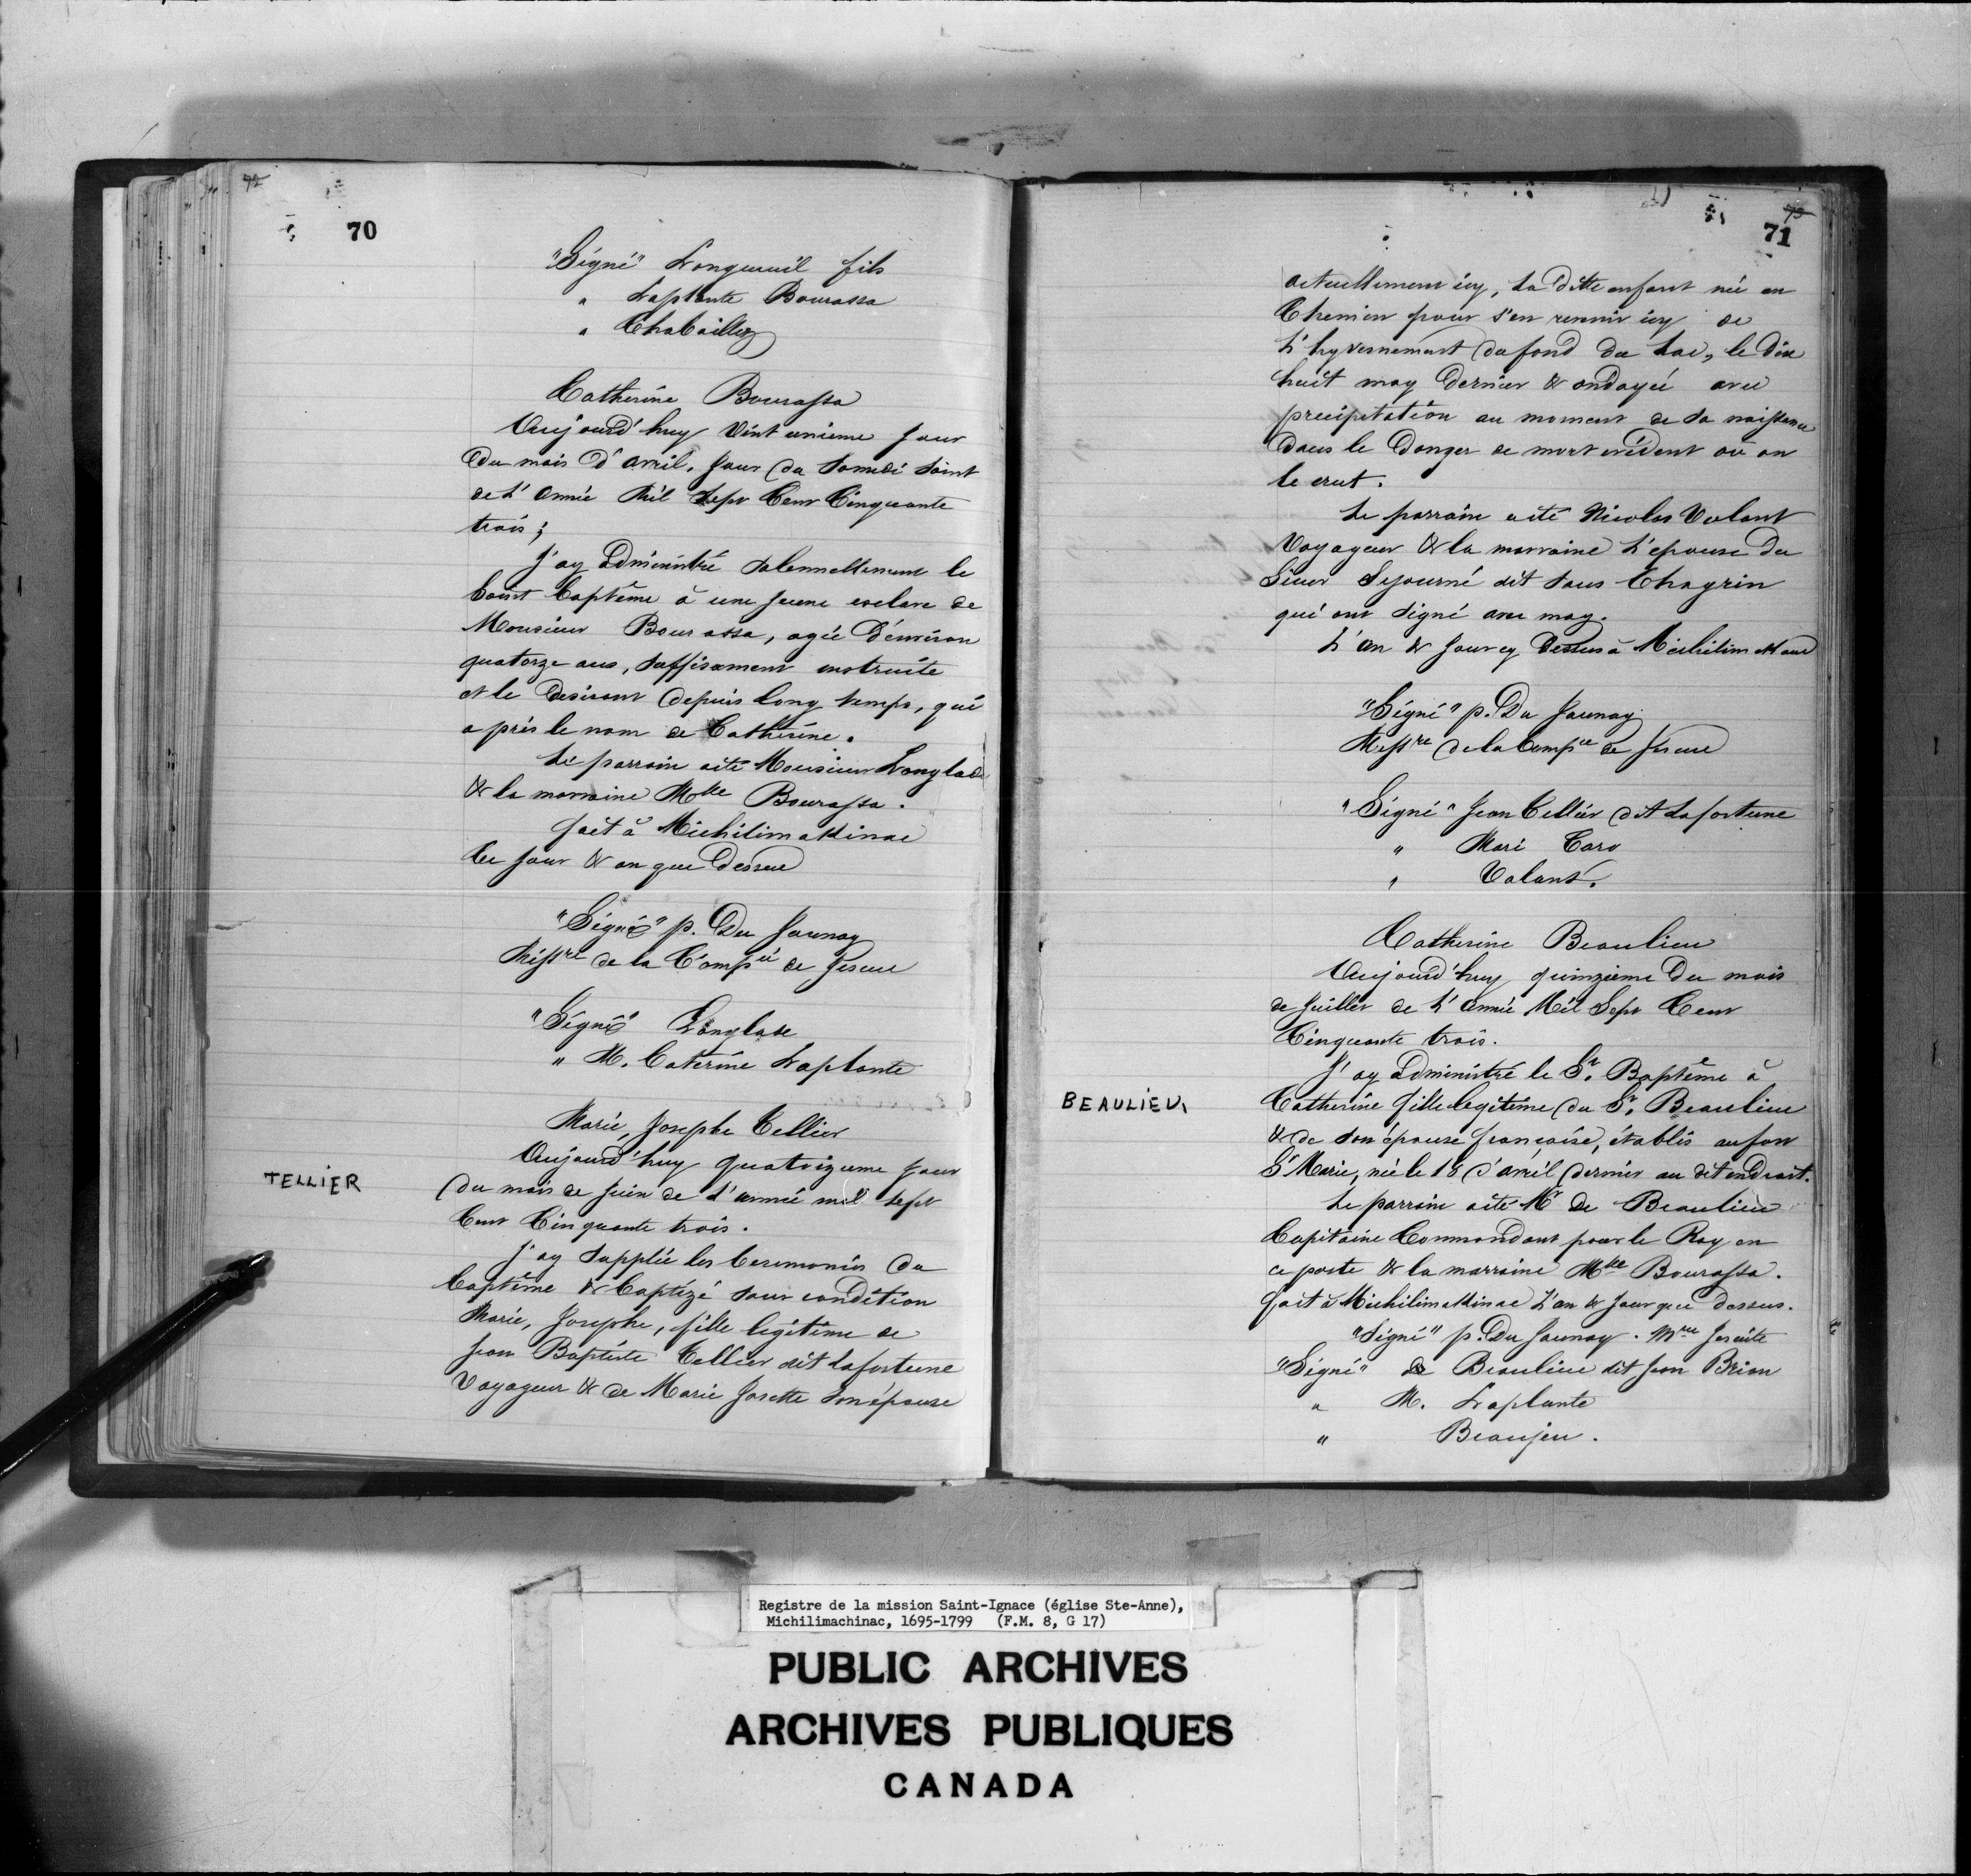 70
"Signé" Longueuil fils
" Laplante Bourassa
" Chaboillez
Catherine Bourassa
Aujourd'huy vint unieme jour
du mois d'avril, jour du Samedi Saint
de L'année Mil Sept Cent Cinquante
trois;
J'ay administré solennellement le
Saint baptême à une jeune esclave de
Monsieur Bourassa, agée d'environ
quatorze ans, suffisament instruite
et le desirant depuis long temps, qui
a pris le nom de Catherine.
Le parrain a été Monsieur Langlade
& la marraine Mlle Bourassa.
fait à Michilimakinac
les jour & an que dessus
"Signé" p. Du Jaunay
Missre de la Compie de Jesus
"Signé" Langlade
" M. Caterine Laplante
Marie, Josephe Tellier
TELLIER
Aujourd'huy quatrizieme jour
du mois de juin de l'année mil sept
Cent Cinquante trois.
J'ay supplée les Ceremonies du
baptême & baptizé sous condition
Marie, Josephe, fille legitime de
Jean Baptiste Tellier dit Lafortune
Voyageur & de Marie Josette son épouse
71
actuellement icy, La ditte enfant née en
Chemin pour s'en revenir icy de
L'hyvernement du fond du Lac, le dix
huit may dernier & ondoyée avec
precipitation au moment de sa naissance
dans le danger de mort evident où on
le crut.
Le parrain a été Nicolas Volant
Voyageur & la marraine L'epouse du
Sieur Sejourné dit Sans Chagrin
qui ont signé avec moy.
L'an & jour cy dessus à Michilimakinac
"Signé" p. Du Jaunay
Missre de la Compie de Jesus
"Signé" Jean Tellier dit Lafortune
" Mari Caro
" Volant.
Catherine Beaulieu
Aujourd'huy quinzieme du mois
de juillet de L'année Mil Sept Cent
Cinquante trois.
J'ay administré le St. Baptême à
BEAULIEU,
Catherine fille legitime du Sr. Beaulieu
& de son épouse françoise, établis au fort
Ste Marie, née le 18 d'avril dernier au dit endroit.
Le parrain a été Mr de Beaulieu
Capitaine Commandant pour le Roy en
ce poste & la marraine Mlle Bourassa.
fait à Michilimakinac L'an & jour que dessus.
"Signé" p. Du Jaunay. Mre Jesuite
"Signé" de Beaulieu dit Jean Brian
" M. Laplante
" Beaujeu.
Registre de la mission Saint-Ignace (église Ste-Anne),
Michilimachinac, 1695-1799 (F.M. 8, G 17)
PUBLIC ARCHIVES
ARCHIVES PUBLIQUES
CANADA